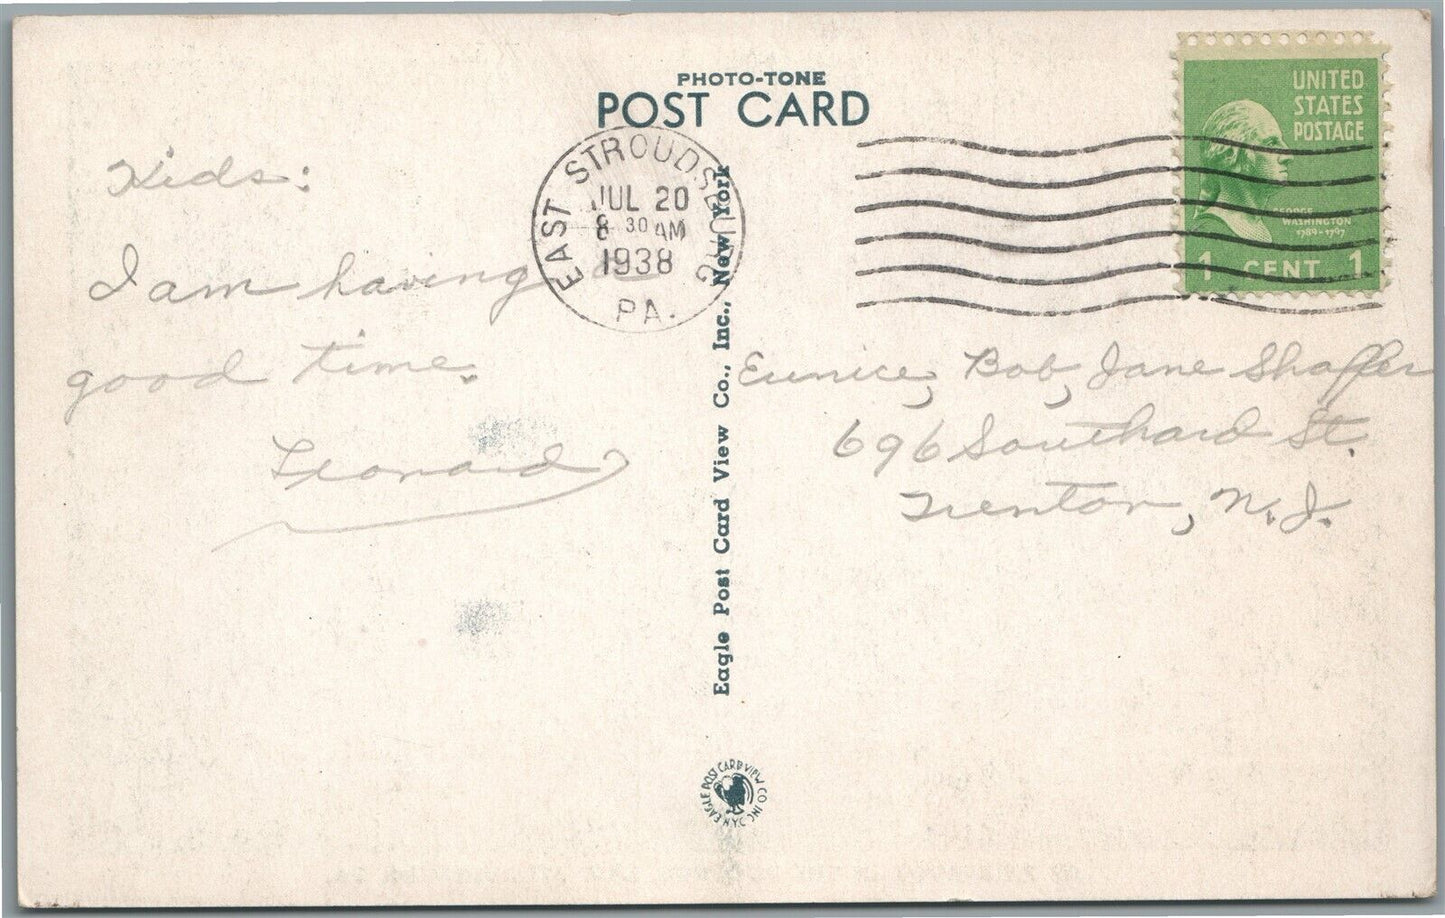 PHOTO-TONE
POST CARD
UNITED
STATES
POSTAGE
GEORGE
WASHINGTON
1789-1797
1 CENT 1
EAST STROUDSBURG
JUL 20
8 30 AM
1938
PA.
Kids:
I am having a
good time.
Leonard
Eunice, Bob, Jane Shaffer
696 Southard St.
Trenton, N.J.
Eagle Post Card View Co., Inc., New York
EAGLE POST CARD VIEW CO INC N.Y.C.